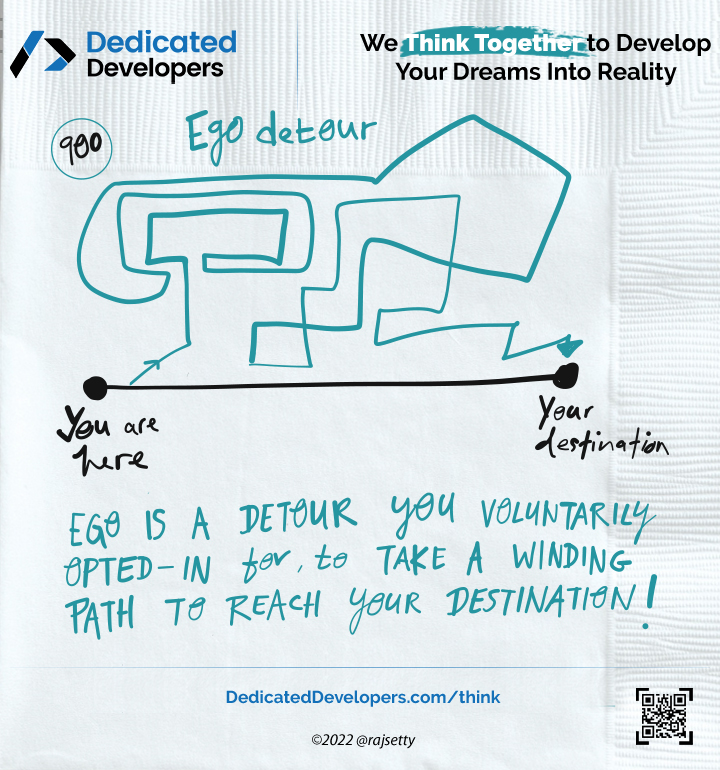 Dedicated
Developers
We Think Together to Develop
Your Dreams Into Reality
900
Ego detour
You are
here
Your
destination
EGO IS A DETOUR YOU VOLUNTARILY
OPTED-IN for, to TAKE A WINDING
PATH TO REACH YOUR DESTINATION!
DedicatedDevelopers.com/think
©2022 @rajsetty